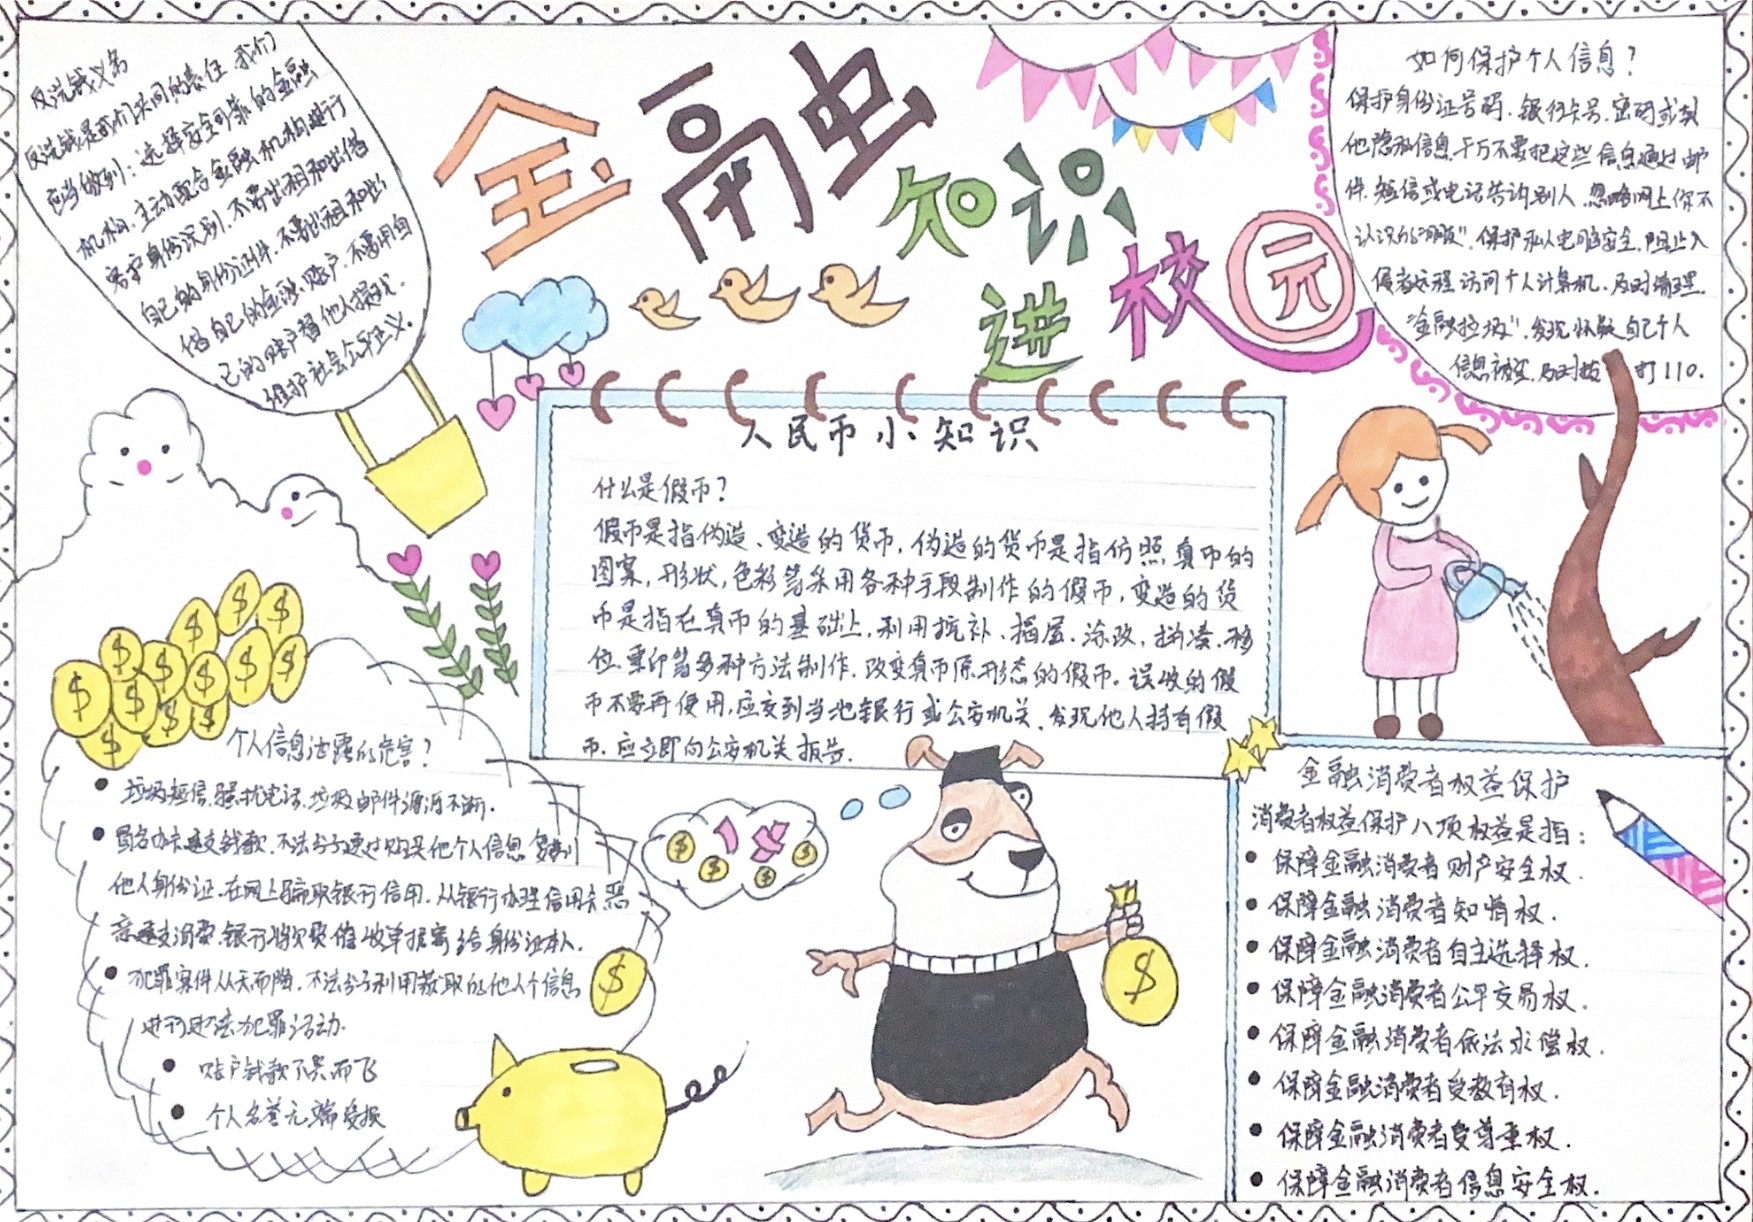 金融知识
进校园
反洗钱义务
反洗钱是我们共同的责任,我们
应当做到:选择安全可靠的金融
机构,主动配合金融机构进行
客户身份识别,不要出租和出借
自己的身份证件,不要出租和出
借自己的金融账户,不要用自
己的账户替他人提现,
维护社会公平正义.
如何保护个人信息?
保护身份证号码.银行卡号.密码或其
他隐私信息,千万不要把这些信息通过邮
件.短信或电话告诉别人.忽略网上你不
认识的"网友".保护私人电脑安全.阻止入
侵者远程访问个人计算机.及时清理
"金融垃圾".发现怀疑自己个人
信息被盗.及时拨打110.
人民币小知识
什么是假币?
假币是指伪造、变造的货币,伪造的货币是指仿照真币的
图案,形状,色彩等采用各种手段制作的假币,变造的货
币是指在真币的基础上,利用挖补、揭层.涂改,拼凑.移
位.重印等多种方法制作.改变真币原形态的假币。误收的假
币不要再使用,应交到当地银行或公安机关.发现他人持有假
币.应立即向公安机关报告.
个人信息泄露的危害?
• 垃圾短信.骚扰电话.垃圾邮件源源不断.
• 冒名办卡透支钱款.不法分子通过购买他个人信息
他人身份证.在网上骗取银行信用.从银行办理信用卡恶
意透支消费.银行将欠费催收单据寄给身份证本人.
• 犯罪案件从天而降.不法分子利用获取的他人个信息
进行违法犯罪活动.
• 账户钱款不异而飞
• 个人名誉无端受损
金融消费者权益保护
消费者权益保护八项权益是指:
• 保障金融消费者财产安全权.
• 保障金融消费者知情权.
• 保障金融消费者自主选择权.
• 保障金融消费者公平交易权.
• 保障金融消费者依法求偿权.
• 保障金融消费者受教育权.
• 保障金融消费者受尊重权.
• 保障金融消费者信息安全权.